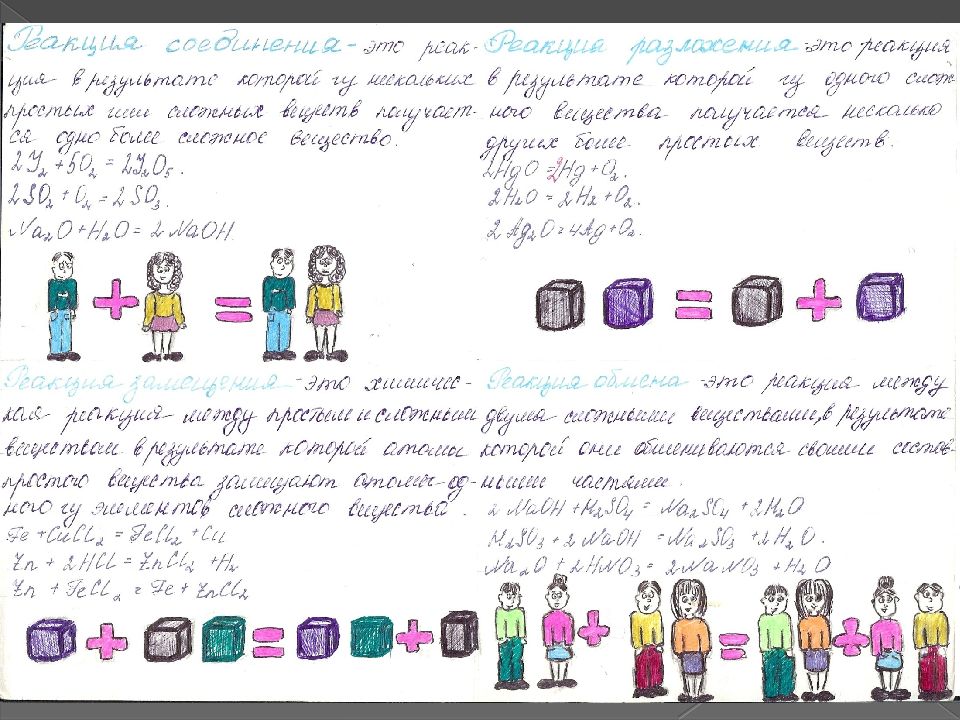 Реакция соединения - это реак-
ция в результате которой из нескольких
простых или сложных веществ получает-
ся одно более сложное вещество.
2J₂ + 5O₂ = 2J₂O₅.
2SO₂ + O₂ = 2SO₃.
Na₂O + H₂O = 2NaOH
Реакция разложения - это реакция
в результате которой из одного слож
ного вещества получается несколько
других более простых веществ.
2HgO = 2Hg + O₂.
2H₂O = 2H₂ + O₂.
2Ag₂O = 4Ag + O₂.
Реакция замещения - это химичес-
кая реакция между простым и сложным
веществом в результате которой атомы
простого вещества замещают атомы од-
ного из элементов сложного вещества.
Fe + CuCl₂ = FeCl₂ + Cu
Zn + 2HCl = ZnCl₂ + H₂
Zn + FeCl₂ = Fe + ZnCl₂
Реакция обмена - это реакция между
двумя сложными веществами, в результате
которой они обмениваются своими состав-
ными частями.
2NaOH + H₂SO₄ = Na₂SO₄ + 2H₂O
H₂SO₃ + 2NaOH = Na₂SO₃ + 2H₂O.
Na₂O + 2HNO₃ = 2NaNO₃ + H₂O